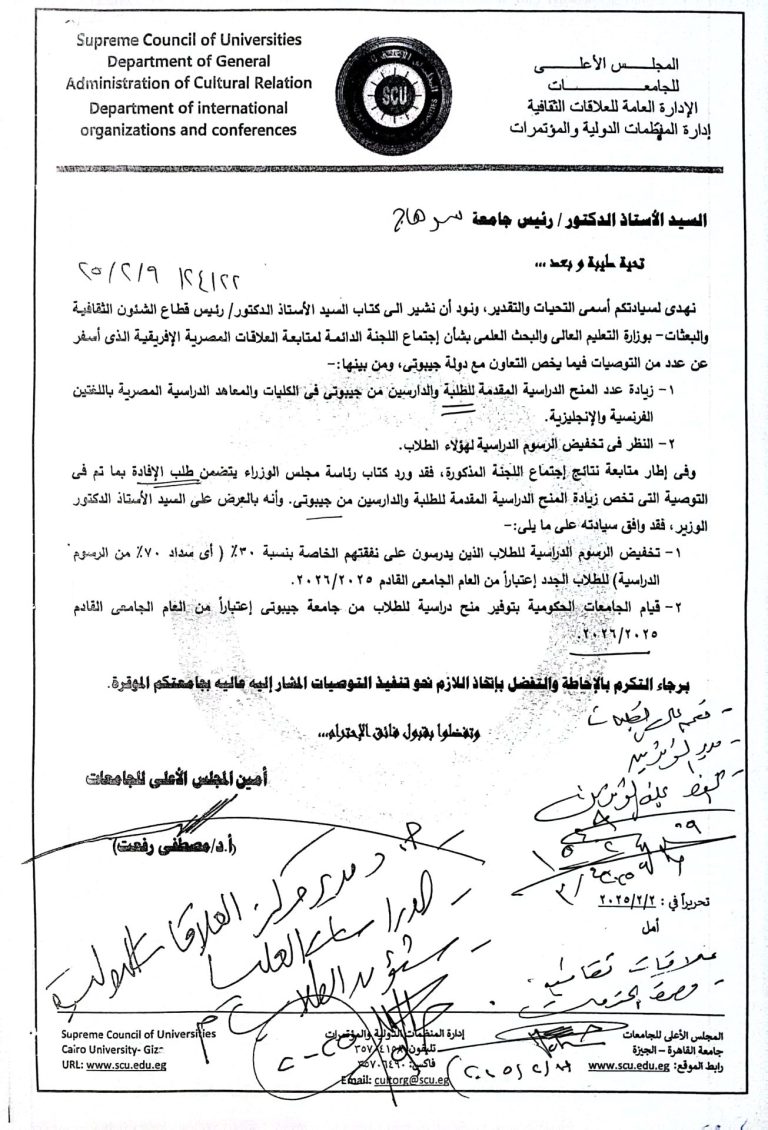 Supreme Council of Universities
Department of General
Administration of Cultural Relation
Department of international
organizations and conferences
SCU
المجلس الأعلى
للجامعات
الإدارة العامة للعلاقات الثقافية
إدارة المنظمات الدولية والمؤتمرات
السيد الأستاذ الدكتور/ رئيس جامعة سوهاج
تحية طيبة وبعد ...
٢٥/٢/٩ ١٢٤١٢٢
نهدى لسيادتكم أسمى التحيات والتقدير، ونود أن نشير الى كتاب السيد الأستاذ الدكتور/ رئيس قطاع الشئون الثقافية
والبعثات- بوزارة التعليم العالى والبحث العلمى بشأن إجتماع اللجنة الدائمة لمتابعة العلاقات المصرية الإفريقية الذى أسفر
عن عدد من التوصيات فيما يخص التعاون مع دولة جيبوتى، ومن بينها:-
١- زيادة عدد المنح الدراسية المقدمة للطلبة والدارسين من جيبوتى فى الكليات والمعاهد الدراسية المصرية باللغتين
الفرنسية والإنجليزية.
٢- النظر فى تخفيض الرسوم الدراسية لهؤلاء الطلاب.
وفى إطار متابعة نتائج إجتماع اللجنة المذكورة، فقد ورد كتاب رئاسة مجلس الوزراء يتضمن طلب الإفادة بما تم فى
التوصية التى تخص زيادة المنح الدراسية المقدمة للطلبة والدارسين من جيبوتى. وأنه بالعرض على السيد الأستاذ الدكتور
الوزير، فقد وافق سيادته على ما يلى:-
١- تخفيض الرسوم الدراسية للطلاب الذين يدرسون على نفقتهم الخاصة بنسبة ٣٠٪ ( أى سداد ٧٠٪ من الرسوم
الدراسية) للطلاب الجدد إعتباراً من العام الجامعى القادم ٢٠٢٦/٢٠٢٥.
٢- قيام الجامعات الحكومية بتوفير منح دراسية للطلاب من جامعة جيبوتى إعتباراً من العام الجامعى القادم
٢٠٢٦/٢٠٢٥.
برجاء التكرم بالإحاطة والتفضل بإتخاذ اللازم نحو تنفيذ التوصيات المشار إليه عاليه بجامعتكم الموقرة.
وتفضلوا بقبول فائق الإحترام،،،
أمين المجلس الأعلى للجامعات
(أ.د/مصطفى رفعت)
تحريراً في: ٢٠٢٥/٢/٢
أمل
د مدير مركز العلاقات الدولية
الدراسات العليا
شئون الطلاب
Supreme Council of Universities
Cairo University- Giz
URL: www.scu.edu.eg
إدارة المنظمات الدولية والمؤتمرات
تليفون:
فاكس:
Email: cultorg@scu.eg
المجلس الأعلى للجامعات
جامعة القاهرة – الجيزة
رابط الموقع: www.scu.edu.eg